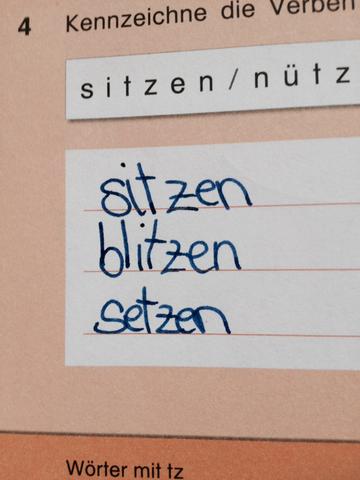 4 Kennzeichne die Verben
sitzen/nütz
sitzen
blitzen
setzen
Wörter mit tz